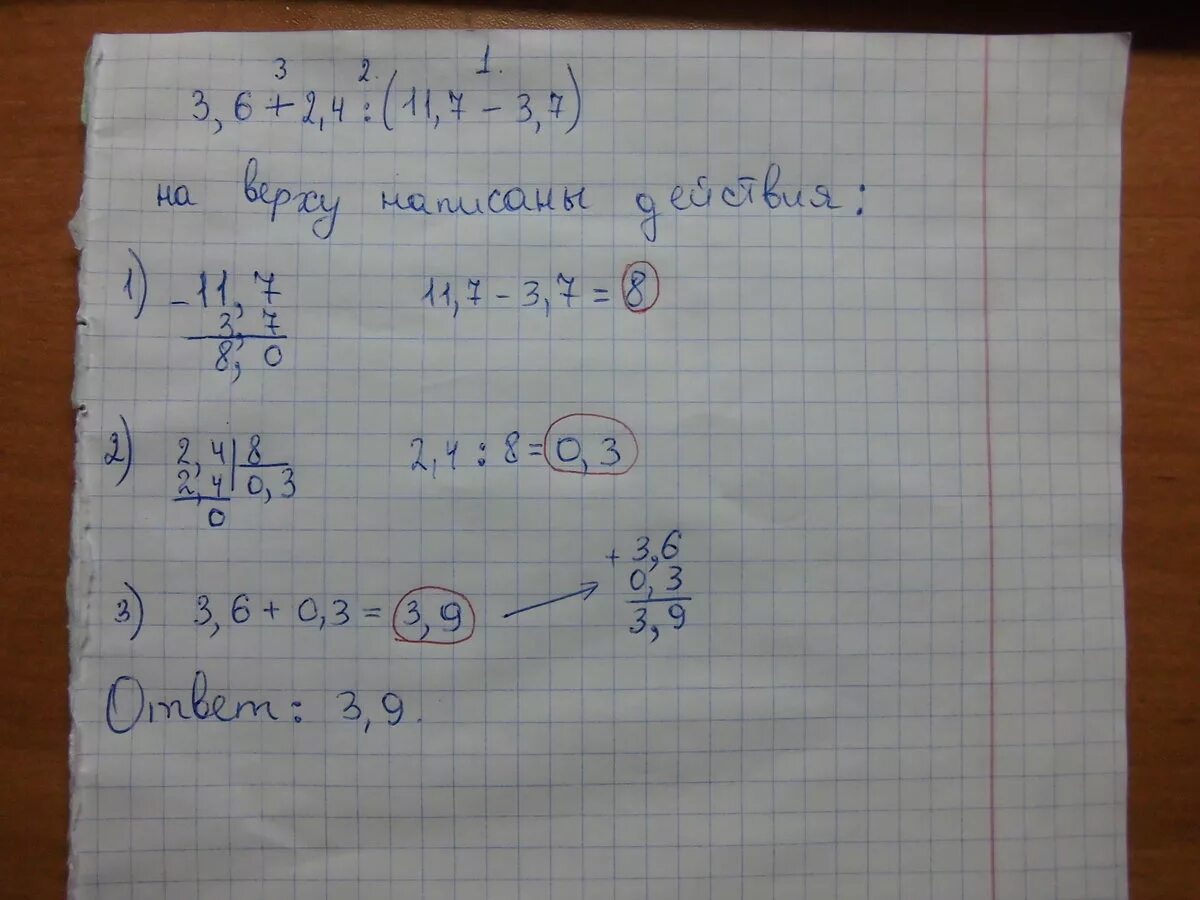 3 2. 1.
3,6 + 2,4 : (11,7 - 3,7)
на верху написаны действия:
1) -11,7 11,7 - 3,7 = 8
3,7
8,0
2) 2,4 8 2,4 : 8 = 0,3
2,4 0,3
0
+3,6
0,3
3,9
3) 3,6 + 0,3 = 3,9
Ответ: 3,9.